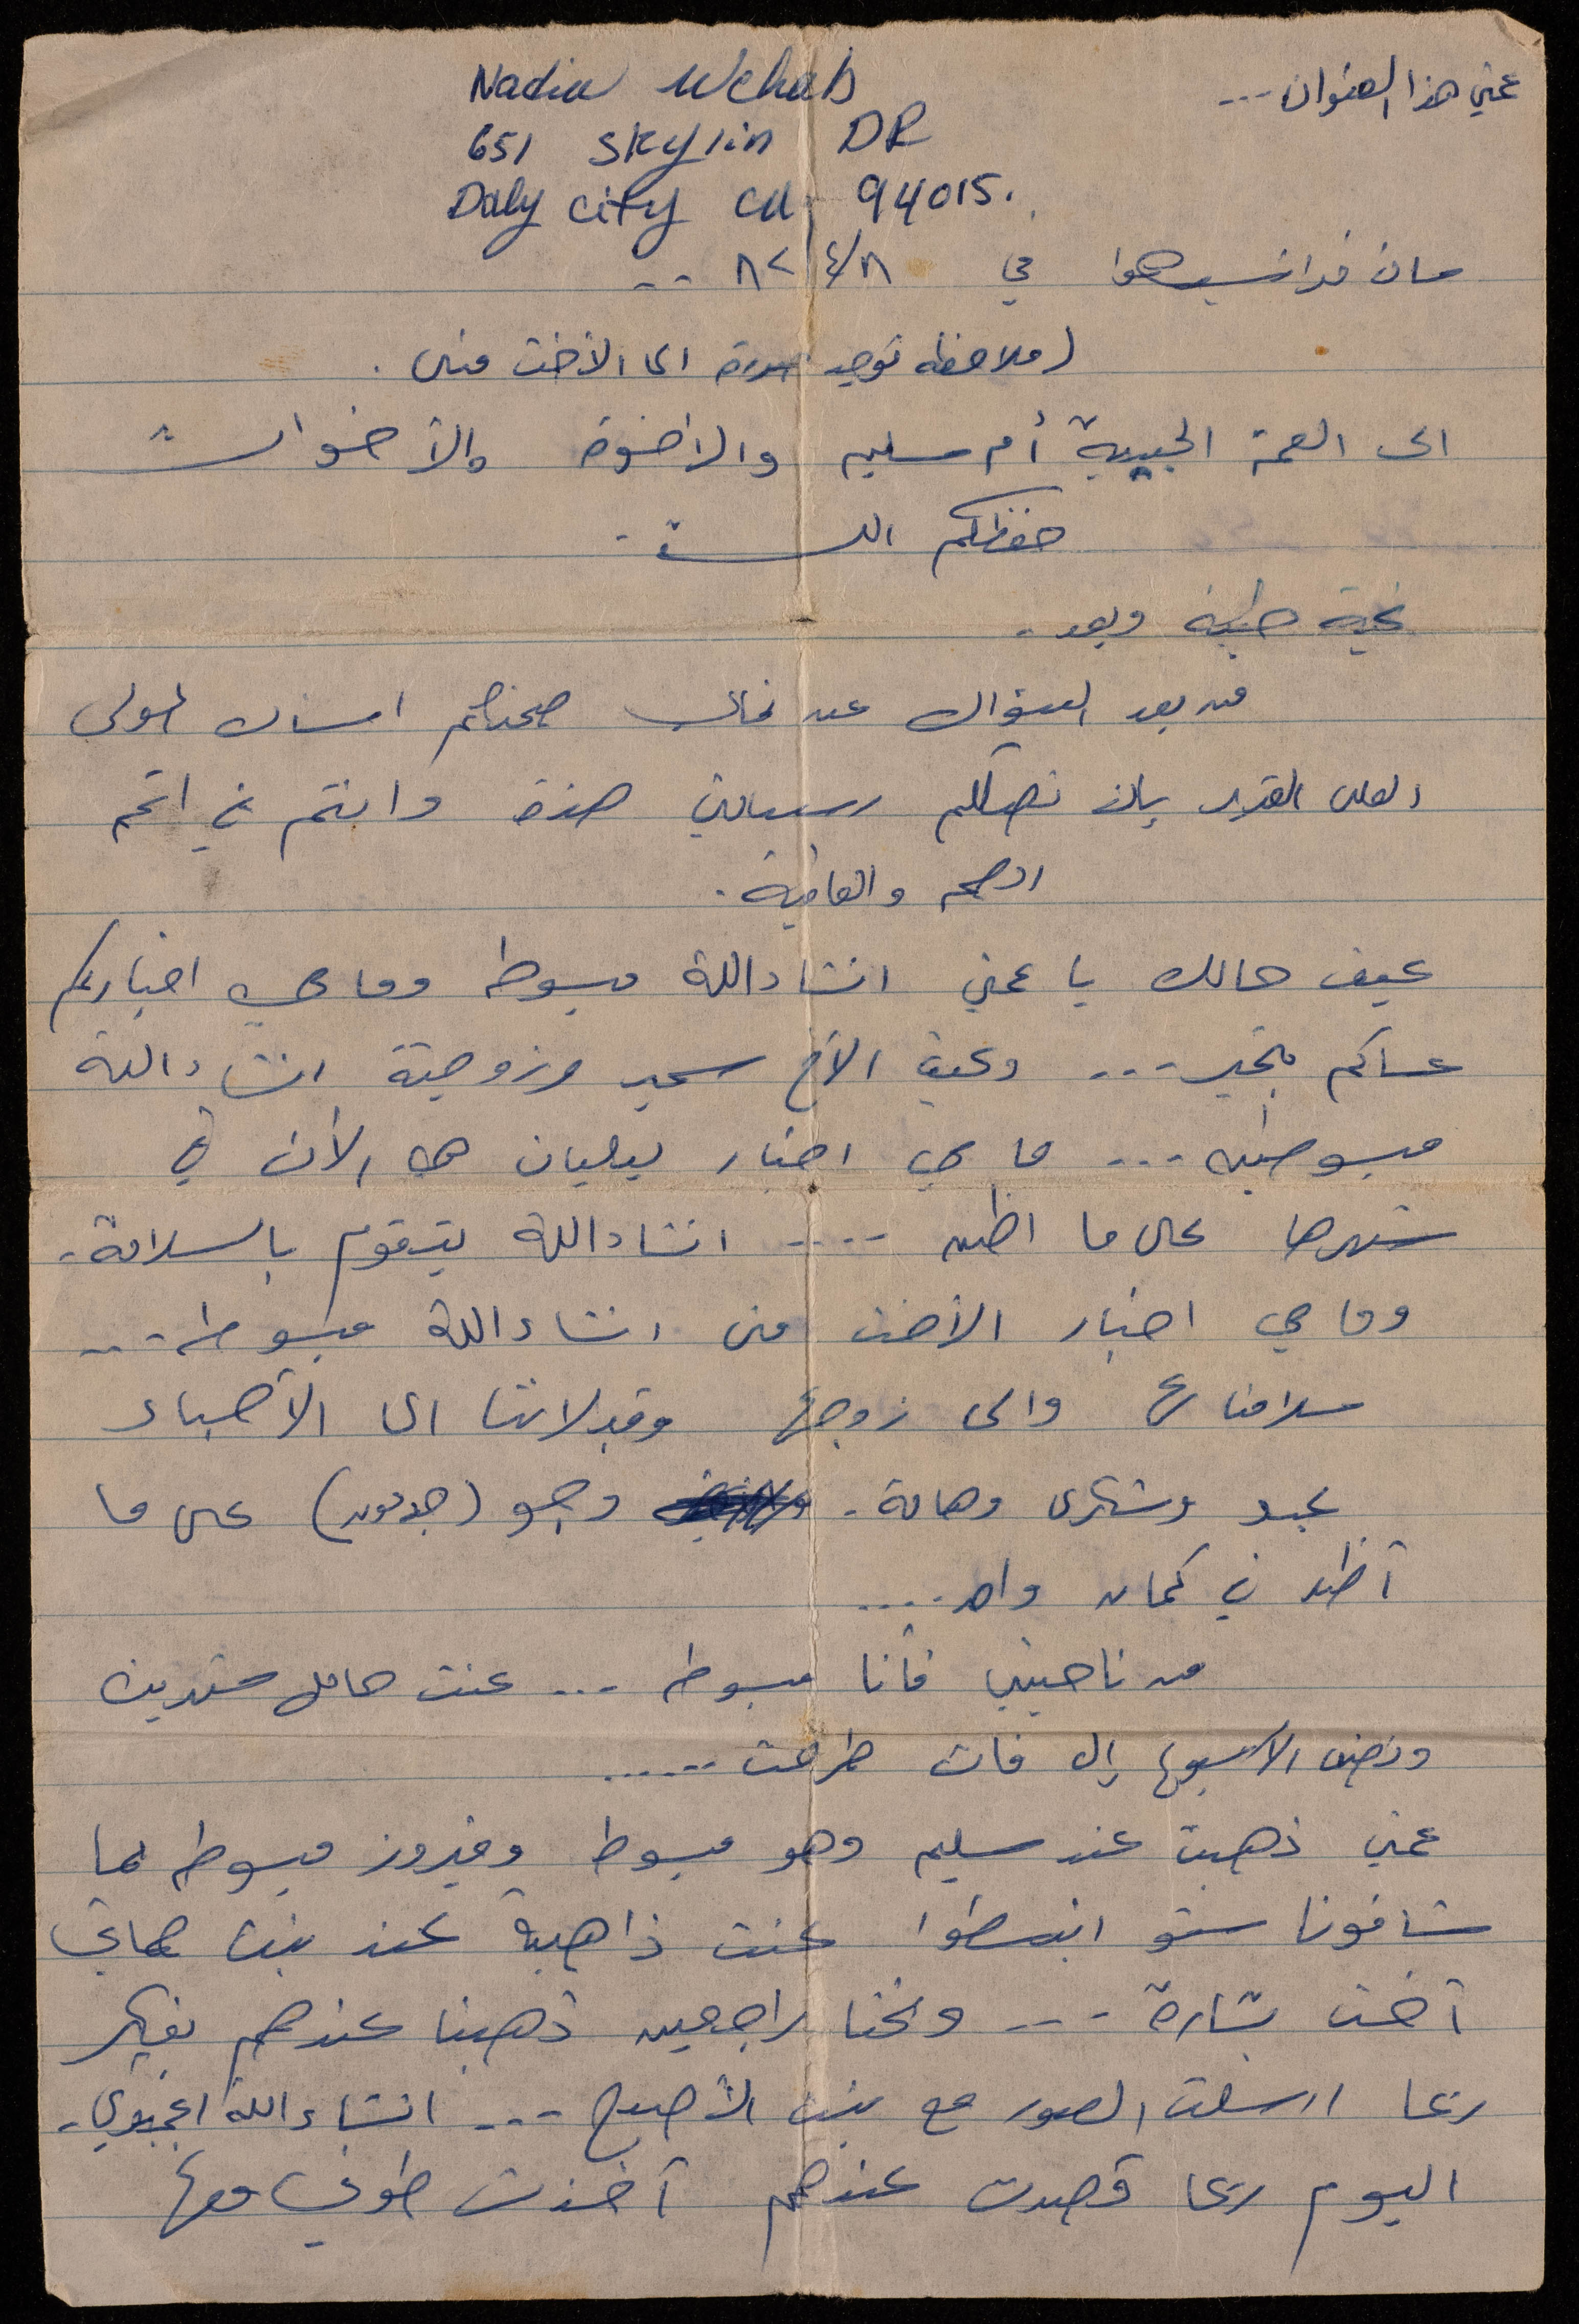 عمتي هذا العنوان ...
Nadia Wehab
651 Skylin DR
Daly City Ca 94015.
سان فرانسيسكوا في ٤/٨ ٨٢ ..
(ملاحظه توجد صورة الى الأخت منى .
الى العمة الحبيبة أم سليم والاخوة والأخوات
حفظكم الله .
تحية طيبة وبعد .
من بعد السؤال عن غالي صحتكم اسأل المولى
العلى القدير بان تصلكم رسالتي هذة وانتم في اتم
الصحه والعافية .
كيف حالك يا عمتي انشاءاللة مبسوطه وما هي اخباركم
عساكم بخير ... وكيف الأخ سمير وزوجتة انشاءاللة
مبسوطين ... ما هي اخبار ليليان هى الأن في
شهرها على ما اظن .... انشاءاللة بتقوم بالسلامة .
وما هي اخبار الأخت منى انشاءاللة مبسوطه ...
سلامنا لها والى زوجها وقبلاتنا الى الأحباء
عبير وشكرى وهالة . وجو (جونيور) على ما
أظن في كمان واحد ....
من ناحيتي فأنا مبسوطه ... كنت حامل شهرين
ونص الاسبوع إلي فات طرحت ......
عمتي ذهبت عند سليم وهو مبسوط وفيروز مبسوطه لما
شافونا شو انبسطوا كنت ذاهبة عند بنت حماتي
أخت بشارة ... ونحنا راجعين ذهبنا عندهم بفكر
رىما ارسلت الصور مع بنت الأصبح ... انشاءاللة اعجبوكي .
اليوم رىما قصدت عندهم أخذت طوني معها